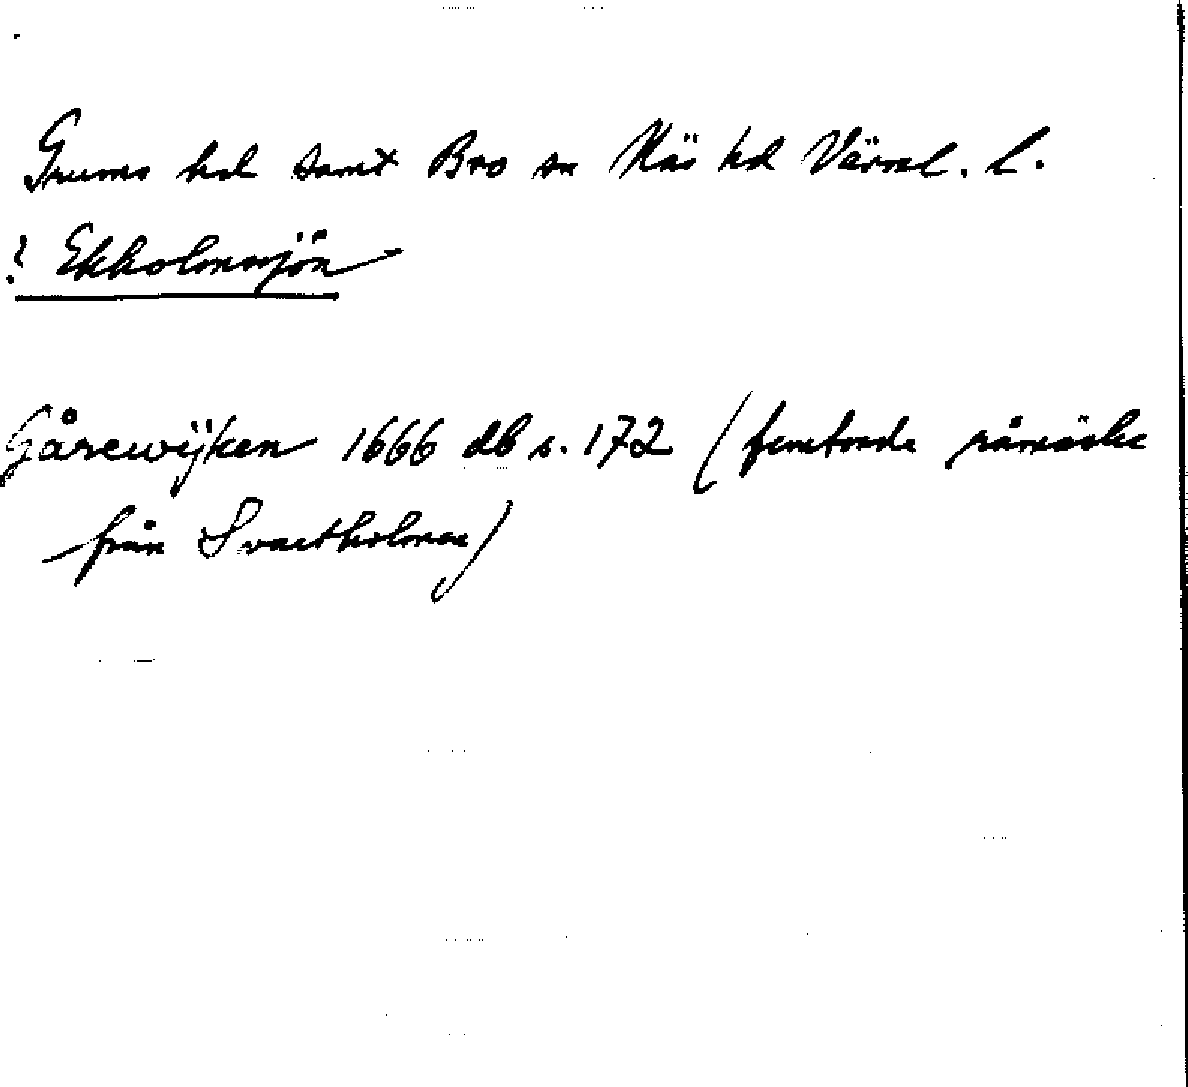 Grums hd samt Bro sn Näs hd Värml. l.
? Ekholmssjön
Gårewijken 1666 db s. 172 (femtonde råmärke
från Svartholmen)